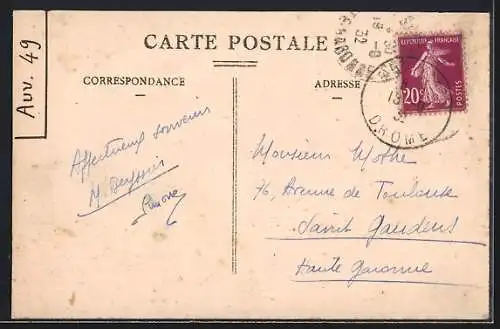 Auv. 49
CARTE POSTALE
CORRESPONDANCE
ADRESSE
REPUBLIQUE FRANÇAISE
20c
POSTES
DROME
Affectueux souvenirs
Simone
Monsieur Mothe
76, Avenue de Toulouse
Saint Gaudens
Haute Garonne